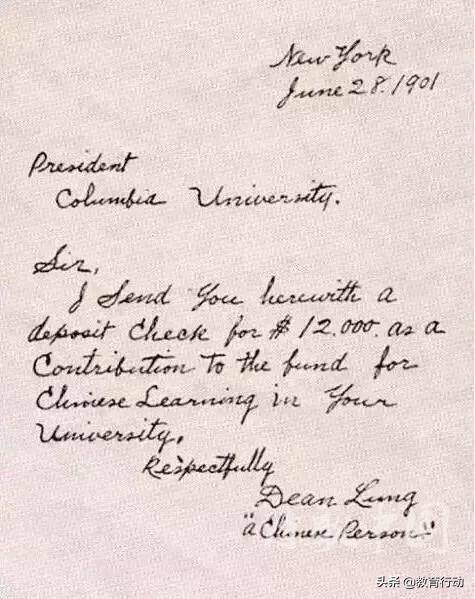 New York
June 28. 1901
President
Columbia University.
Sir,
I Send You herewith a
deposit Check for $ 12.000. as a
Contribution to the fund for
Chinese Learning in Your
University.
Respectfully
Dean Lung
"a Chinese Person"
头条 @教育行动